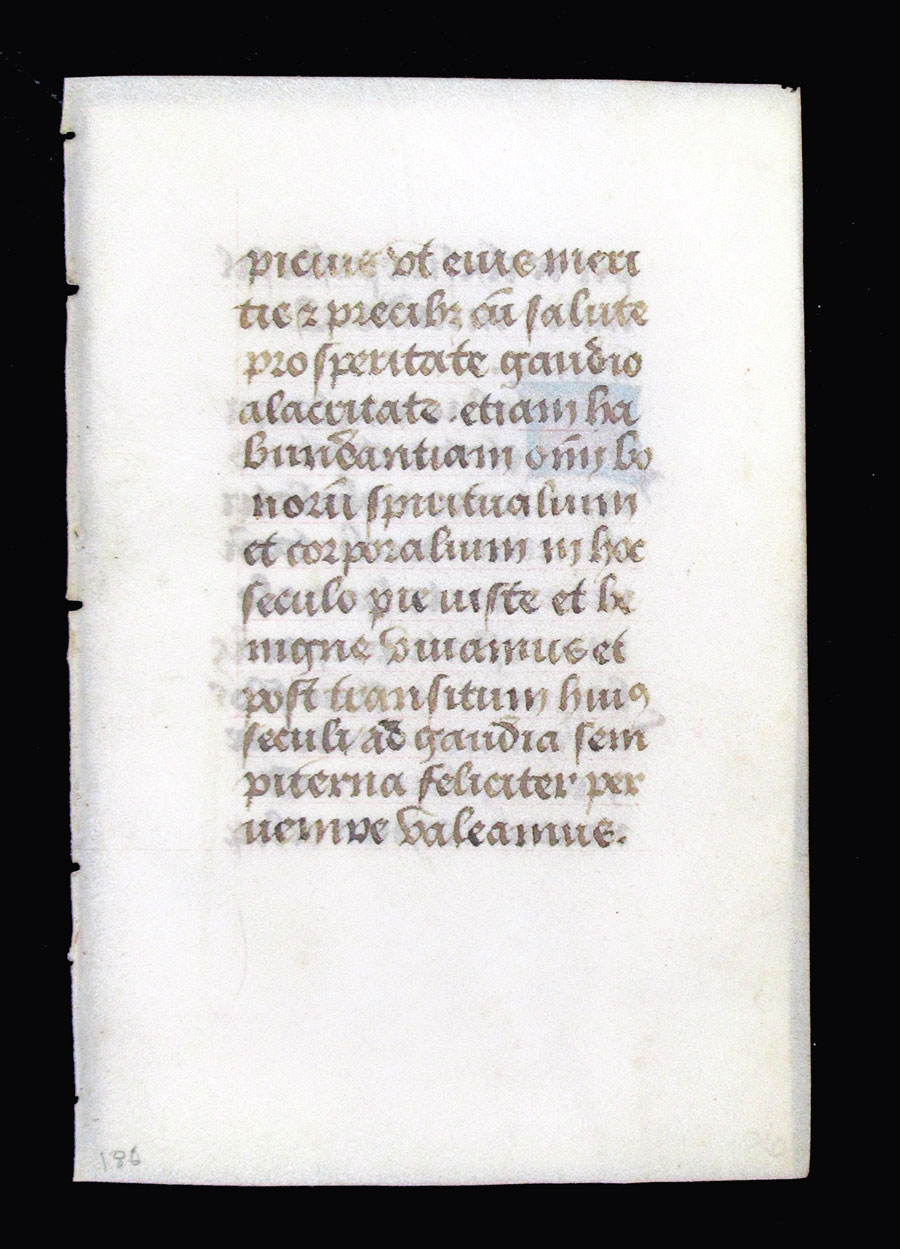 picius vt eius meri
tis ⁊ precibꝫ cū salute
prosperitate gaudio
alacritate etiam ha
bundantiam oīm bo
norū spiritualium
et corporalium in hoc
seculo pie iuste et be
nigne viuamus et
post transitum huiꝰ
seculi ad gaudia sem
piterna feliciter per
uenire valeamus.
185